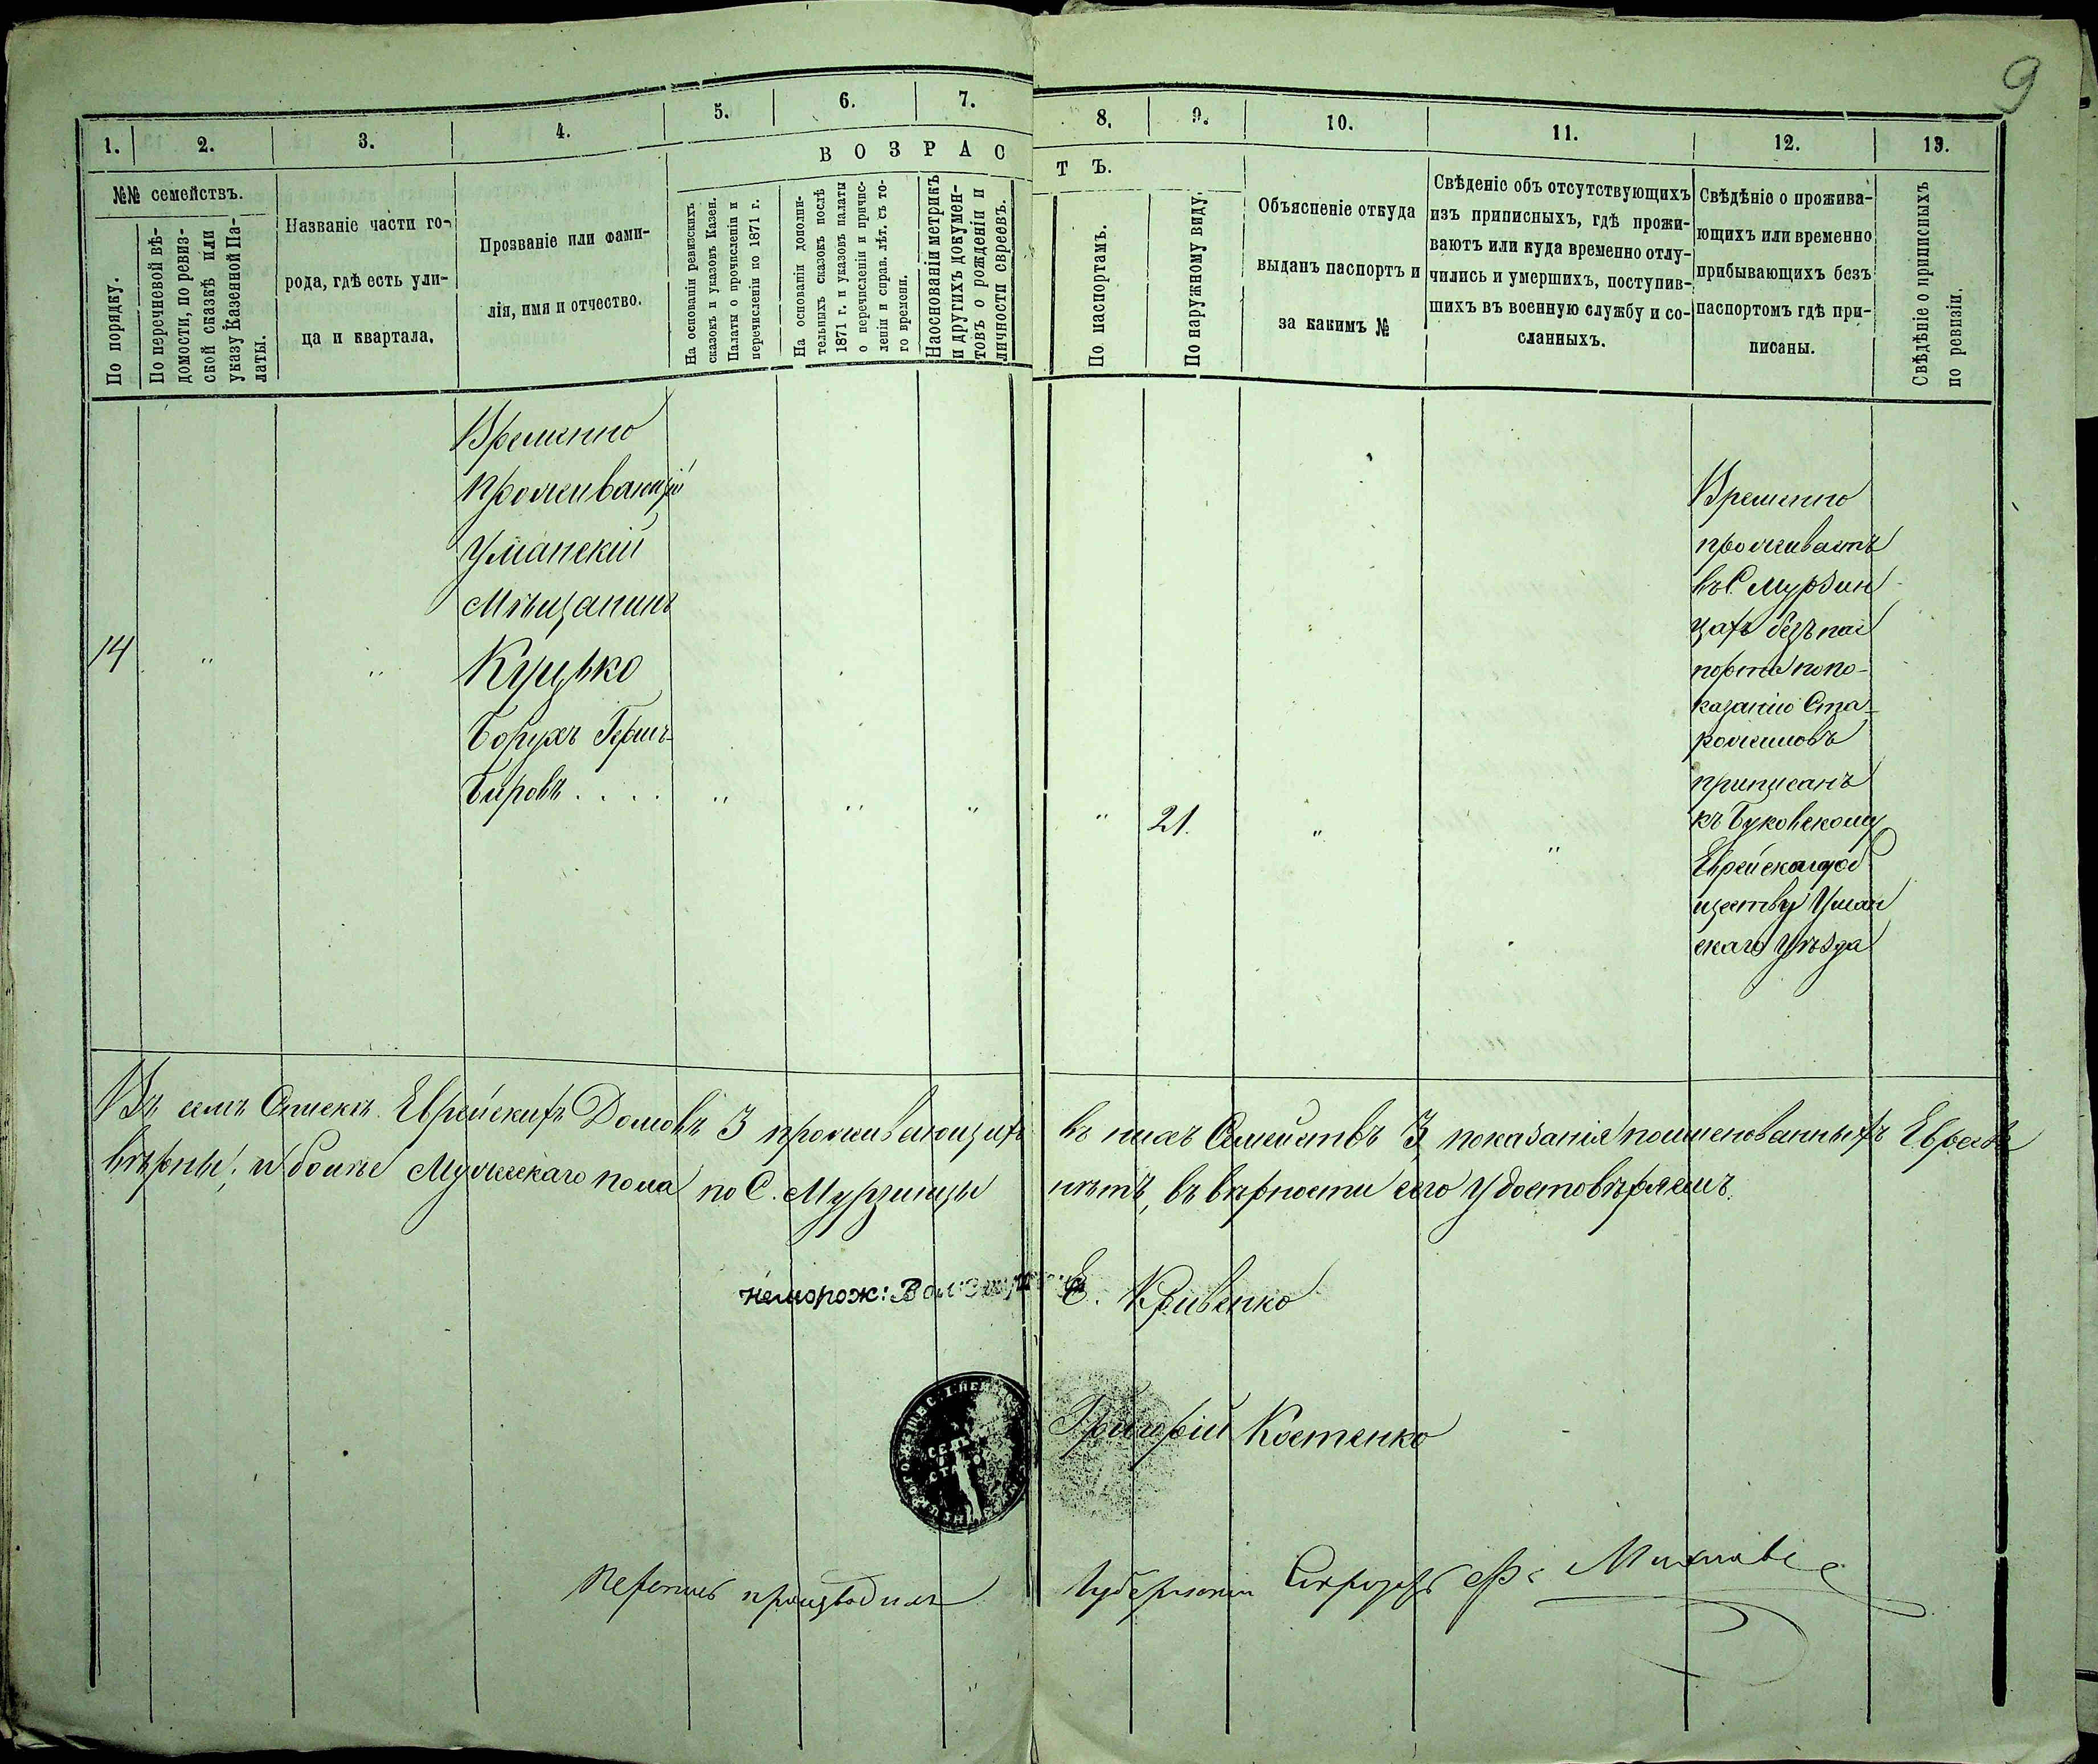 9
1. 2. 3. 4. 5. 6. 7. 8. 9. 10. 11. 12. 13.
ВОЗРАСТЪ.
№№ семействъ.
По порядку.
По перечневой вѣ-
домости, по ревиз-
ской сказкѣ или
указу Казенной Па-
латы.
Названіе части го-
рода, гдѣ есть ули-
ца и квартала.
Прозваніе или фами-
лія, имя и отчество.
На основаніи ревизскихъ
сказокъ и указовъ Казен.
Палаты о прочисленіи и
перечисленіи по 1871 г.
На основаніи дополни-
тельныхъ сказокъ послѣ
1871 г. и указовъ палаты
о перечисленіи и причис-
леніи и справ. лѣт. съ то-
го времени.
На основаніи метрикъ
и другихъ докумен-
товъ о рожденіи и
личности евреевъ.
По паспортамъ.
По наружному виду.
Объясненіе откуда
выданъ паспортъ и
за какимъ №
Свѣденіе объ отсутствующихъ
изъ приписныхъ, гдѣ прожи-
ваютъ или куда временно отлу-
чились и умершихъ, поступив-
шихъ въ военную службу и со-
сланныхъ.
Свѣдѣніе о прожива-
ющихъ или временно
прибывающихъ безъ
паспортомъ гдѣ при-
писаны.
Свѣдѣніе о приписныхъ
по ревизіи.
Временно
Проживающій
Уманскій
Мѣщанинъ
14 " " Куцько
Борухъ Герш-
Беровъ . . . . " " " " 21. " "
Временно
проживаетъ
въ С. Мурзин
цахъ безъ пас
порта по по-
казанію Ста-
рожиловъ
приписанъ
къ Буковскому
Еврейскому об
ществу Уман
скаго Уѣзда
Въ семъ Спискѣ Еврейскихъ Домовъ 3 проживающихъ въ нихъ Семействъ 3 показанія поименованныхъ Евреевъ
вѣрны; и болѣе Мужескаго пола по С. Мурзинцы нѣтъ, въ вѣрности сего удостовѣряемъ.
Неморож: Вол: Е. Кривенко
СЕЛЬ
СТА
Григорій Костенко
Перепись производилъ Губернскій Секретарь